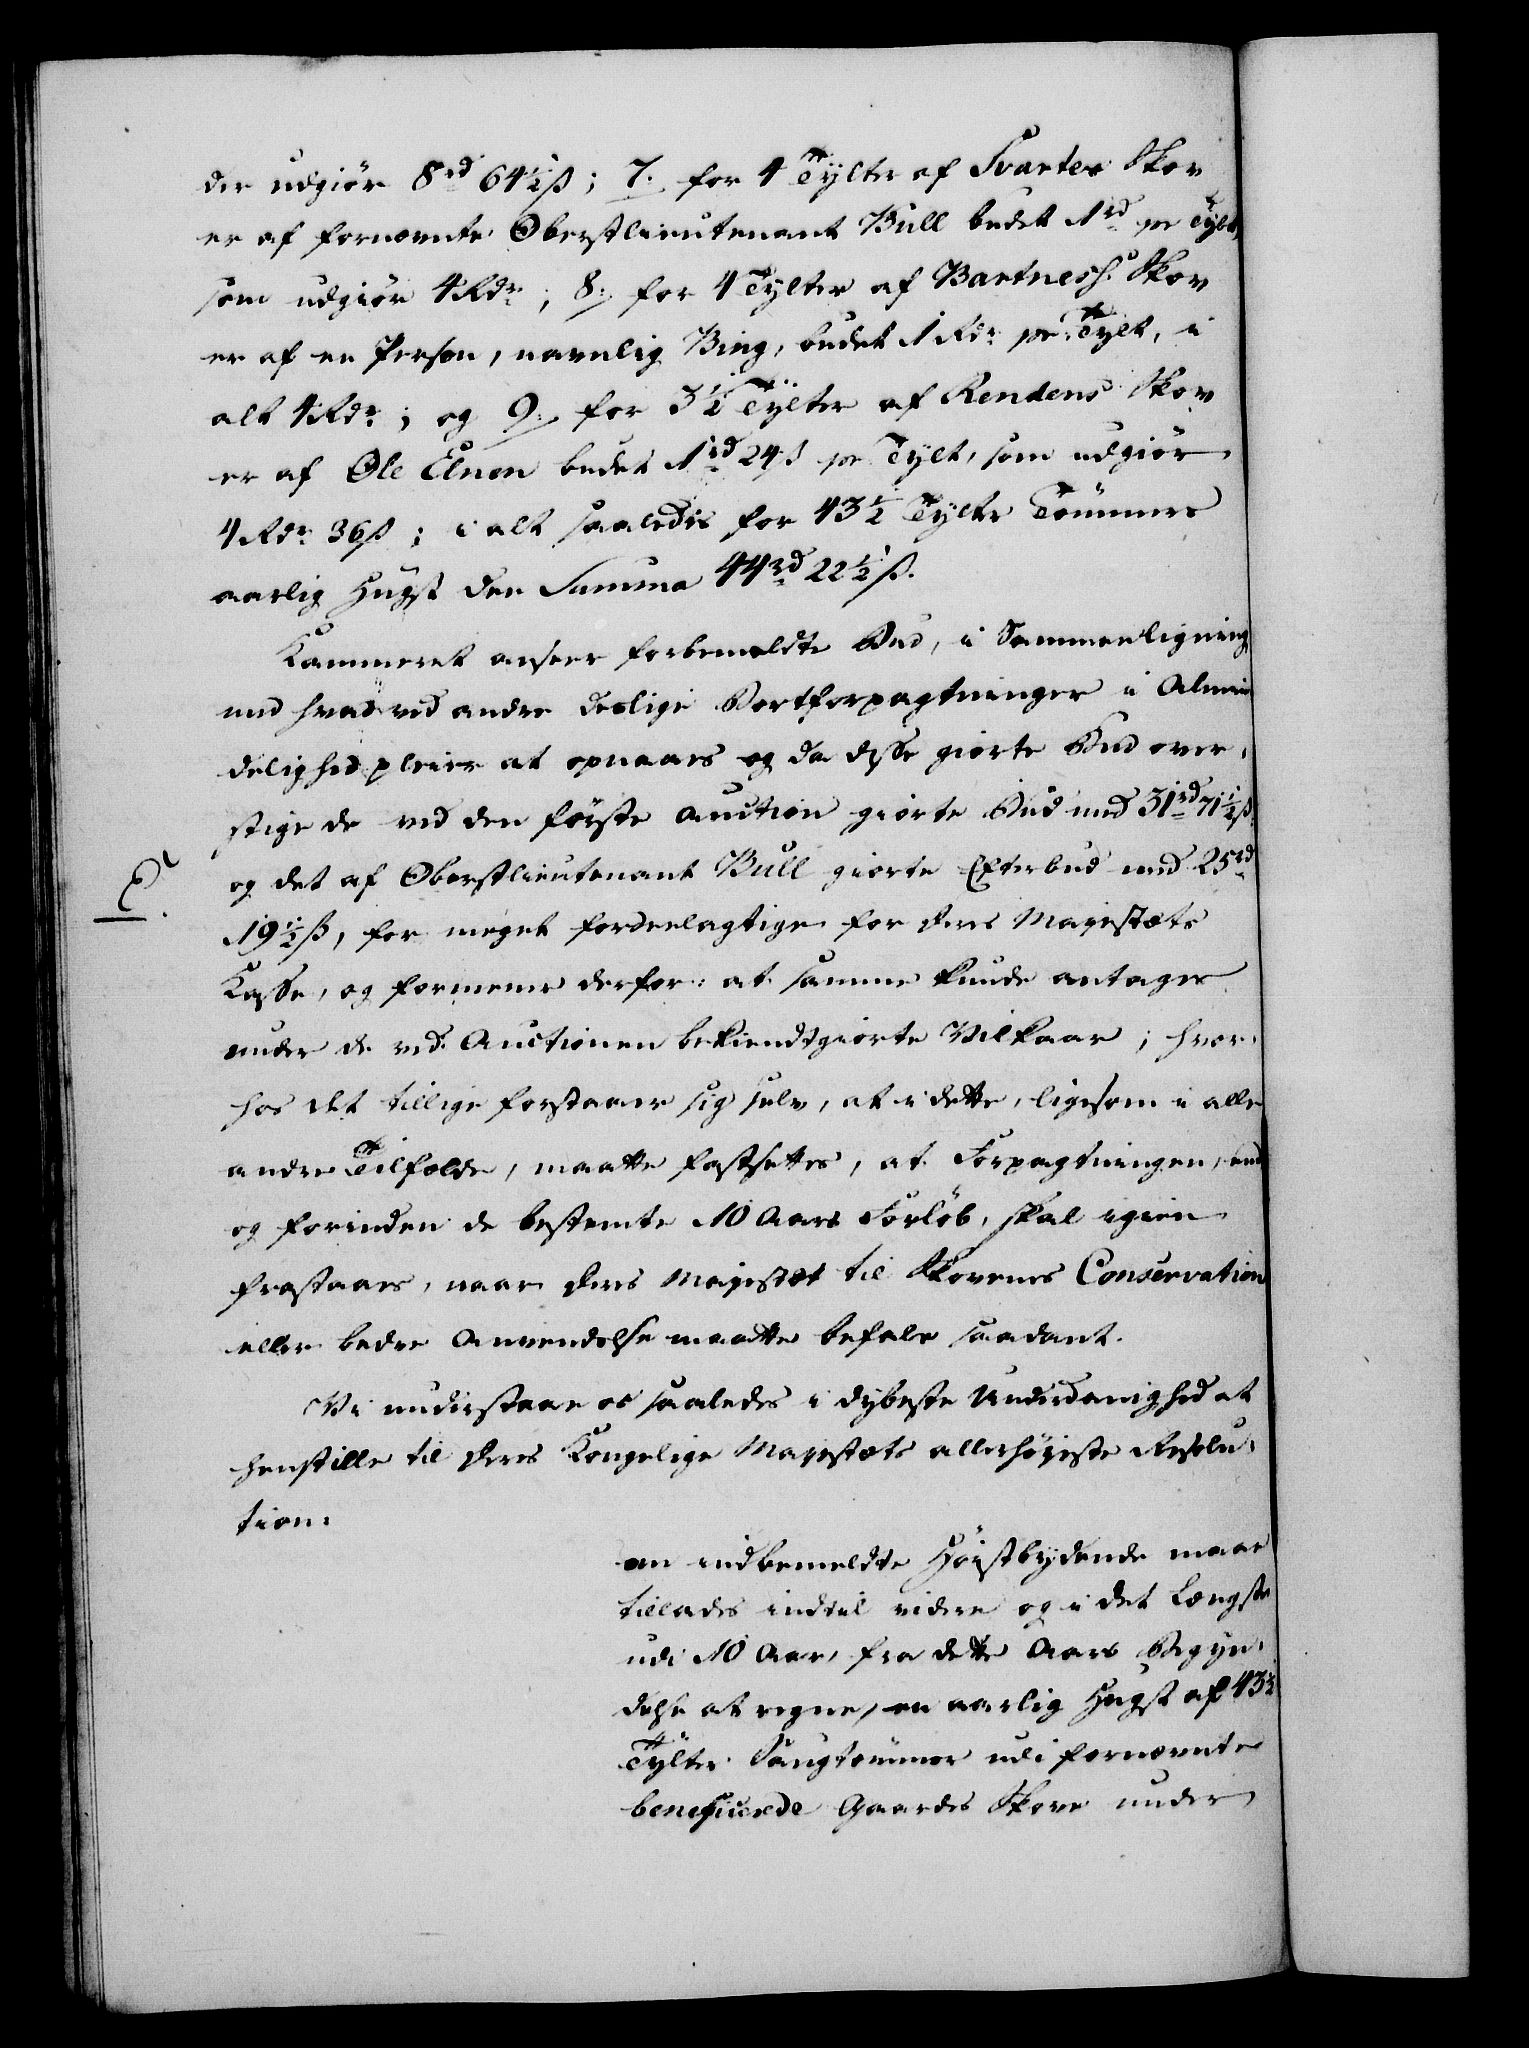 der udgiør 8rd 64½ß; 7. for 4 Tylter af Svartes Skov
er af fornævnte Oberstlieutenant Bull budet 1rd pr Tylt,
som udgiør 4 Rdr; 8. for 4 Tylter af Bartnesh. Skov
er af en Person, navnlig Bing, budet 1 Rdr pr Tylt, i
alt 4 Rdr; og 9. for 3½ Tylter af Rendens Skov
er af Ole Elnon budet 1rd 24ß pr Tylt, som udgiør
4 Rdr 36ß; i alt saaledes for 43½ Tylter Tømmers
aarlig Hugst den Summa 44rd 22½ß.
Kammeret anseer forbemeldte Bud, i Sammenligning
med hvad ved andre deslige Bortforpagtninger i Almin
delighed pleier at opnaaes og da disse giorte Bud over-
stige de ved den første Auction giorte Bud med 31rd 71½ß
og det af Oberstlieutenant Bull giorte Efterbud med 25rd
19½ß, for meget fordeelagtige for Deres Majestæts
Kasse, og formener derfor: at samme kunde antages
under de ved Auctionen bekiendtgiorte Vilkaar; hvor-
hos det tillige forstaaer sig selv, at i dette, ligesom i alle
andre Tilfælde, maatte fastsættes, at Forpagtningen, end
og forinden de bestemte 10 Aars Forløb, skal igien
frastaaes, naar Deres Majestæt til Skovenes Conservation
eller bedre Anvendelse maatte befale saadant.
Vi understaae os saaledes i dybeste Underdanighed at
henstille til Deres Kongelige Majestæts allerhøieste Resolu-
tion:
om indbemeldte Høistbydende maae
tillades indtil videre og i det Længste
udi 10 Aar, fra dette Aars Begyn-
delse at regne, en aarlig Hugst af 43½
Tylter Saugtømmer udi fornævnte
beneficerede Gaardes Skove under